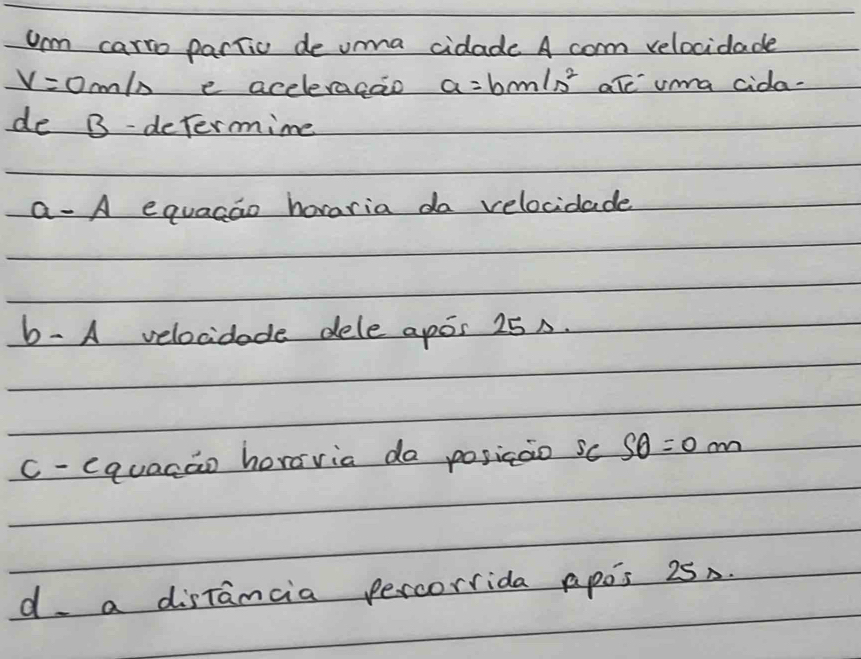 Um carro partiu de uma cidade A com velocidade
V=0m/s e aceleração a=6m/s² até uma cida-
de B - determine
a- A equação horaria da velocidade
b- A velocidade dele após 25 s.
c- equação horaria da posição se S0=0 m
d- a distância percorrida após 25 s.